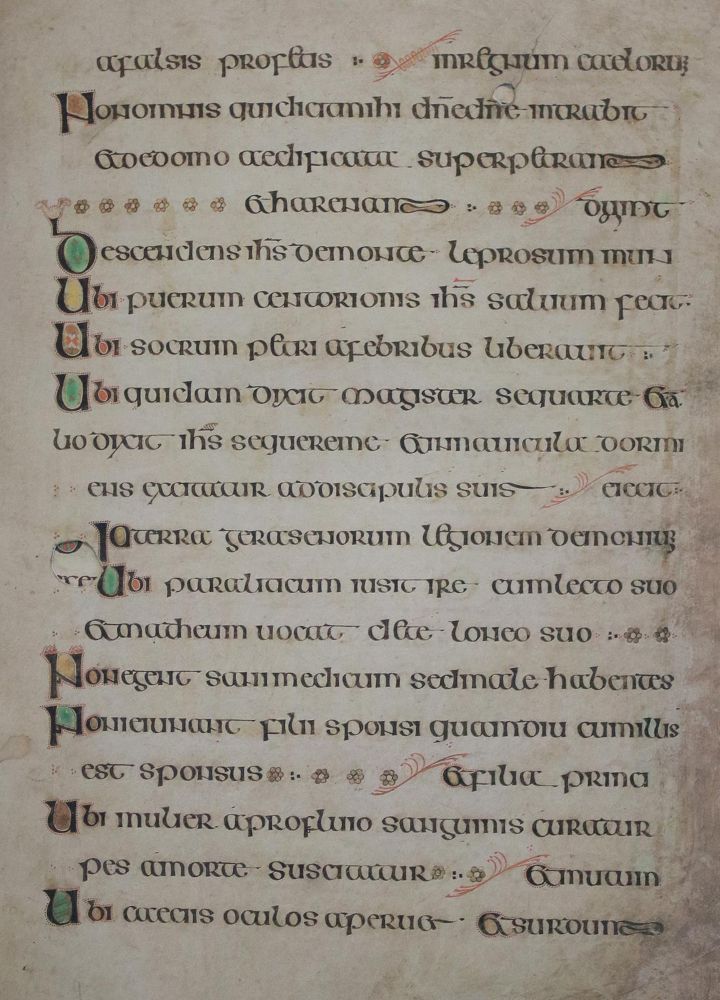 afalsis profetis inregnum caeloruꝫ
Nonomnis quidicitmihi dn̄edn̄e intrabit
&dedomo aedificata superpetram
&harenam
Descendens ihs̄ demonte leprosum mun
Ubi puerum centorionis ihs̄ saluum fecit
Ubi socrum petri afebribus liberauit
Ubi quidam dixit magister sequarte &a
lio dixit ihs̄ sequereme &innauicula dormi
ens excitatur addiscipulis suis eiecit
Interra gerasenorum legionem demoniuꝫ
Ubi paraliticum iusit ire cumlecto suo
&matheum uocat dete loneo suo
Nonegent sanimedicum sedmale habentes
Nonieiunant filii sponsi quamdiu cumillis
est sponsus &filia princi
Ubi mulier aprofluuio sanguinis curatur
pes amorte suscitatur &mutum
Ubi caecis oculos aperuit &surdum